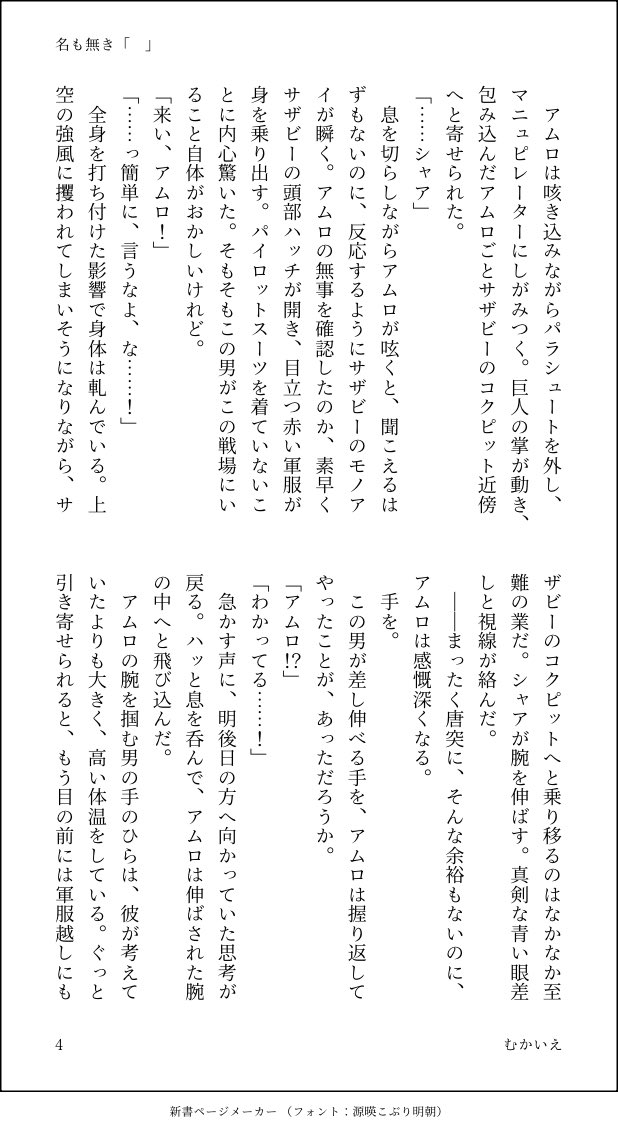 名も無き「　」
　アムロは咳き込みながらパラシュートを外し、
マニュピレーターにしがみつく。巨人の掌が動き、
包み込んだアムロごとサザビーのコクピット近傍
へと寄せられた。
「……シャア」
　息を切らしながらアムロが呟くと、聞こえるは
ずもないのに、反応するようにサザビーのモノア
イが瞬く。アムロの無事を確認したのか、素早く
サザビーの頭部ハッチが開き、目立つ赤い軍服が
身を乗り出す。パイロットスーツを着ていないこ
とに内心驚いた。そもそもこの男がこの戦場にい
ること自体がおかしいけれど。
「来い、アムロ！」
「……っ簡単に、言うなよ、な……！」
　全身を打ち付けた影響で身体は軋んでいる。上
空の強風に攫われてしまいそうになりながら、サ
ザビーのコクピットへと乗り移るのはなかなか至
難の業だ。シャアが腕を伸ばす。真剣な青い眼差
しと視線が絡んだ。
　――まったく唐突に、そんな余裕もないのに、
アムロは感慨深くなる。
　手を。
　この男が差し伸べる手を、アムロは握り返して
やったことが、あっただろうか。
「アムロ!?」
「わかってる……！」
　急かす声に、明後日の方へ向かっていた思考が
戻る。ハッと息を呑んで、アムロは伸ばされた腕
の中へと飛び込んだ。
　アムロの腕を掴む男の手のひらは、彼が考えて
いたよりも大きく、高い体温をしている。ぐっと
引き寄せられると、もう目の前には軍服越しにも
4
むかいえ
新書ページメーカー（フォント：源暎こぶり明朝）